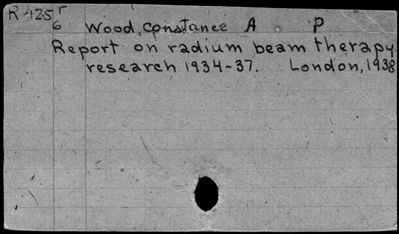 R 425r
6 Wood, Constance A P
Report on radium beam therapy
research 1934-37. London, 1938